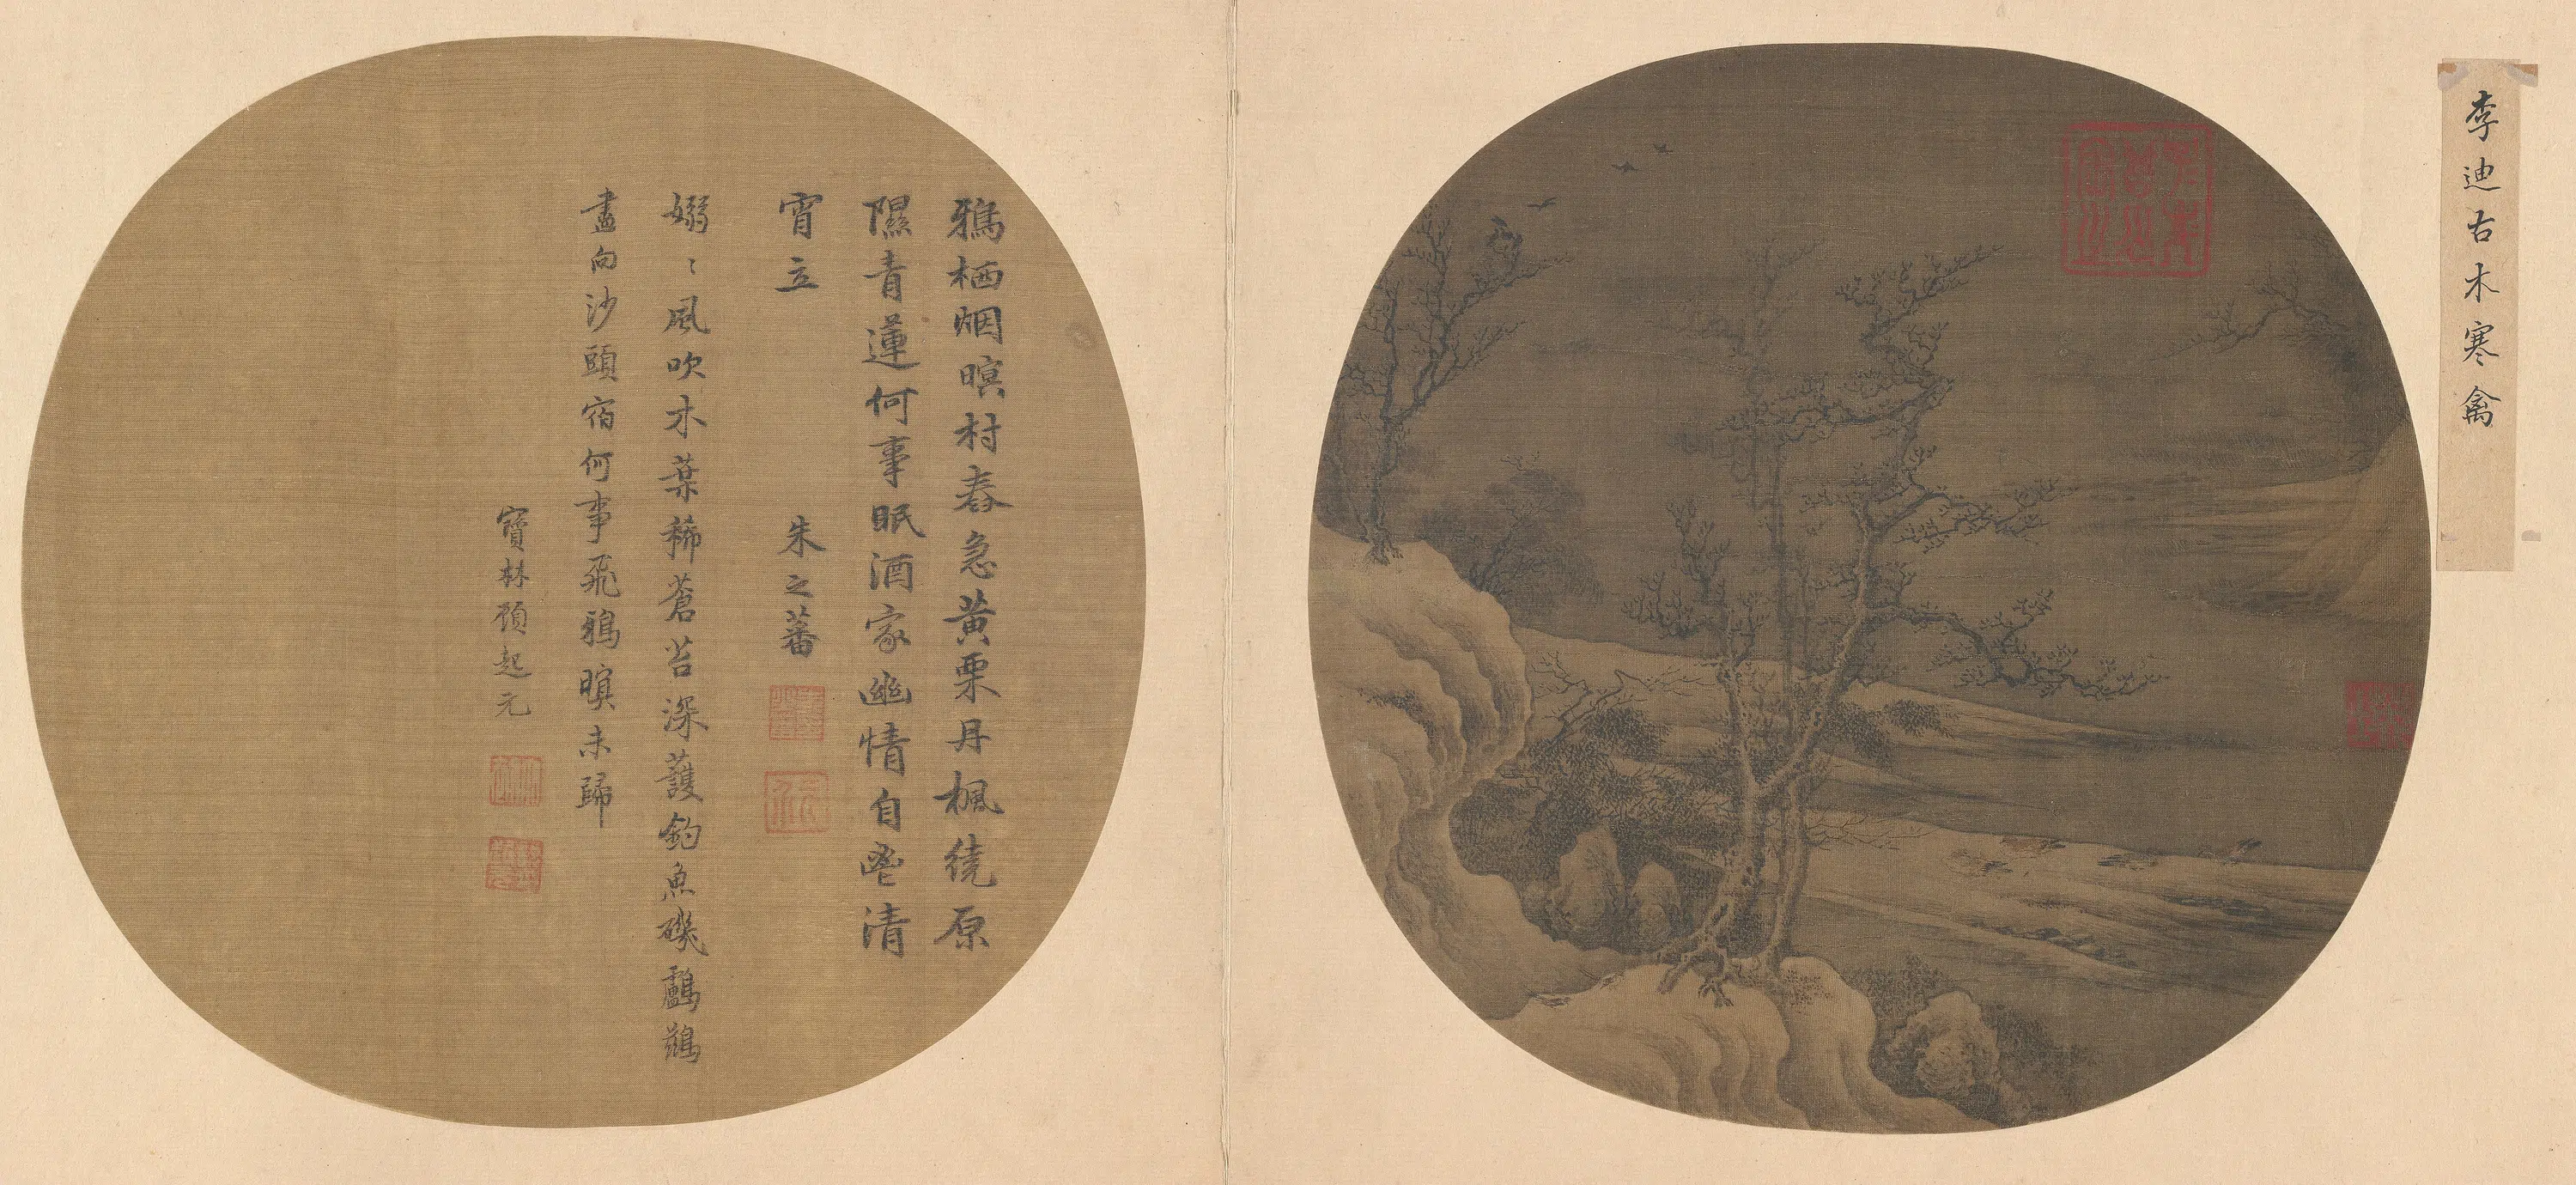 李迪古木寒禽
鴉栖烟暝村舂急黄栗丹楓繞原
隰青蓮何事眠酒家幽情自愛清
宵立
朱之蕃
嫋〻風吹木葉稀蒼苔深護釣魚磯鸕鶿
盡向沙頭宿何事飛鴉暝未歸
寶林顧起元